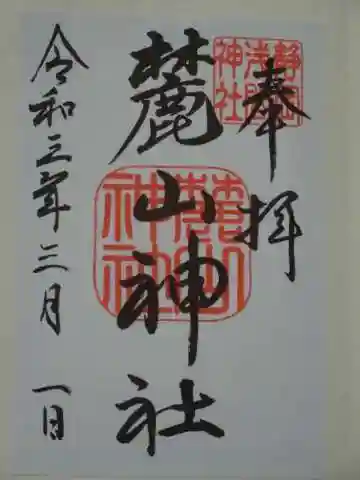 奉拝
静岡浅間神社
麓山神社
麓山神社
令和三年三月一日